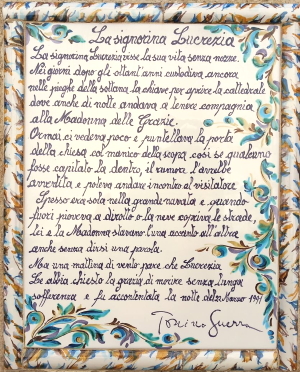 La signorina Lucrezia
La signorina Lucrezia visse la sua vita senza nozze.
Nei giorni dopo gli ottant'anni custodiva ancora
nelle pieghe della sottana la chiave per aprire la cattedrale
dove anche di notte andava a tenere compagnia
alla Madonna delle Grazie.
Ormai ci vedeva poco e puntellava la porta
della chiesa col manico della scopa così se qualcuno
fosse capitato là dentro, il rumore l'avrebbe
avvertita e poteva andare incontro al visitatore.
Spesso era sola nella grande navata e quando
fuori pioveva a dirotto o la neve copriva le strade,
lei e la Madonna stavano l'una accanto all'altra
anche senza dirsi una parola.
Ma una mattina di vento pare che Lucrezia
Le abbia chiesto la grazia di morire senza lunga
sofferenza e fu accontentata la notte del Marzo 1971
Tonino Guerra